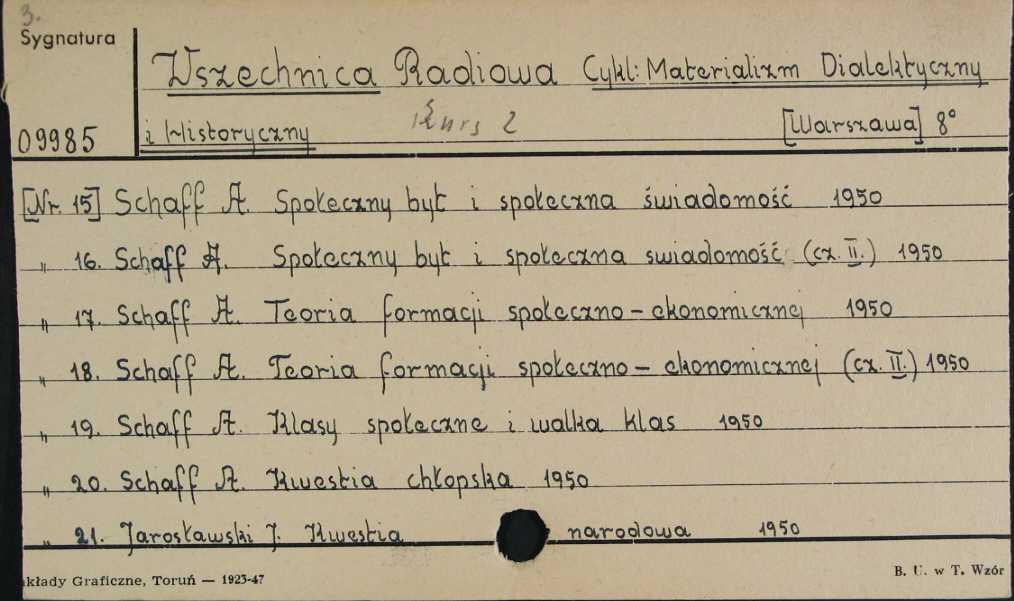 3.
Sygnatura
Wszechnica Radiowa Cykl: Materializm Dialektyczny
09985 i Historyczny Kurs 2 [Warszawa] 8°
[Nr. 15] Schaff A. Społeczny byt i społeczna świadomość 1950
„ 16. Schaff A. Społeczny byt i społeczna swiadomość (cz. II.) 1950
„ 17. Schaff A. Teoria formacji społeczno - ekonomicznej 1950
„ 18. Schaff A. Teoria formacji społeczno - ekonomicznej (cz. II.) 1950
„ 19. Schaff A. Klasy społeczne i walka klas 1950
„ 20. Schaff A. Kwestia chłopska 1950
„ 21. Jarosławski J. Kwestia narodowa 1950
kłady Graficzne, Toruń — 1923-47 B. U. w T. Wzór